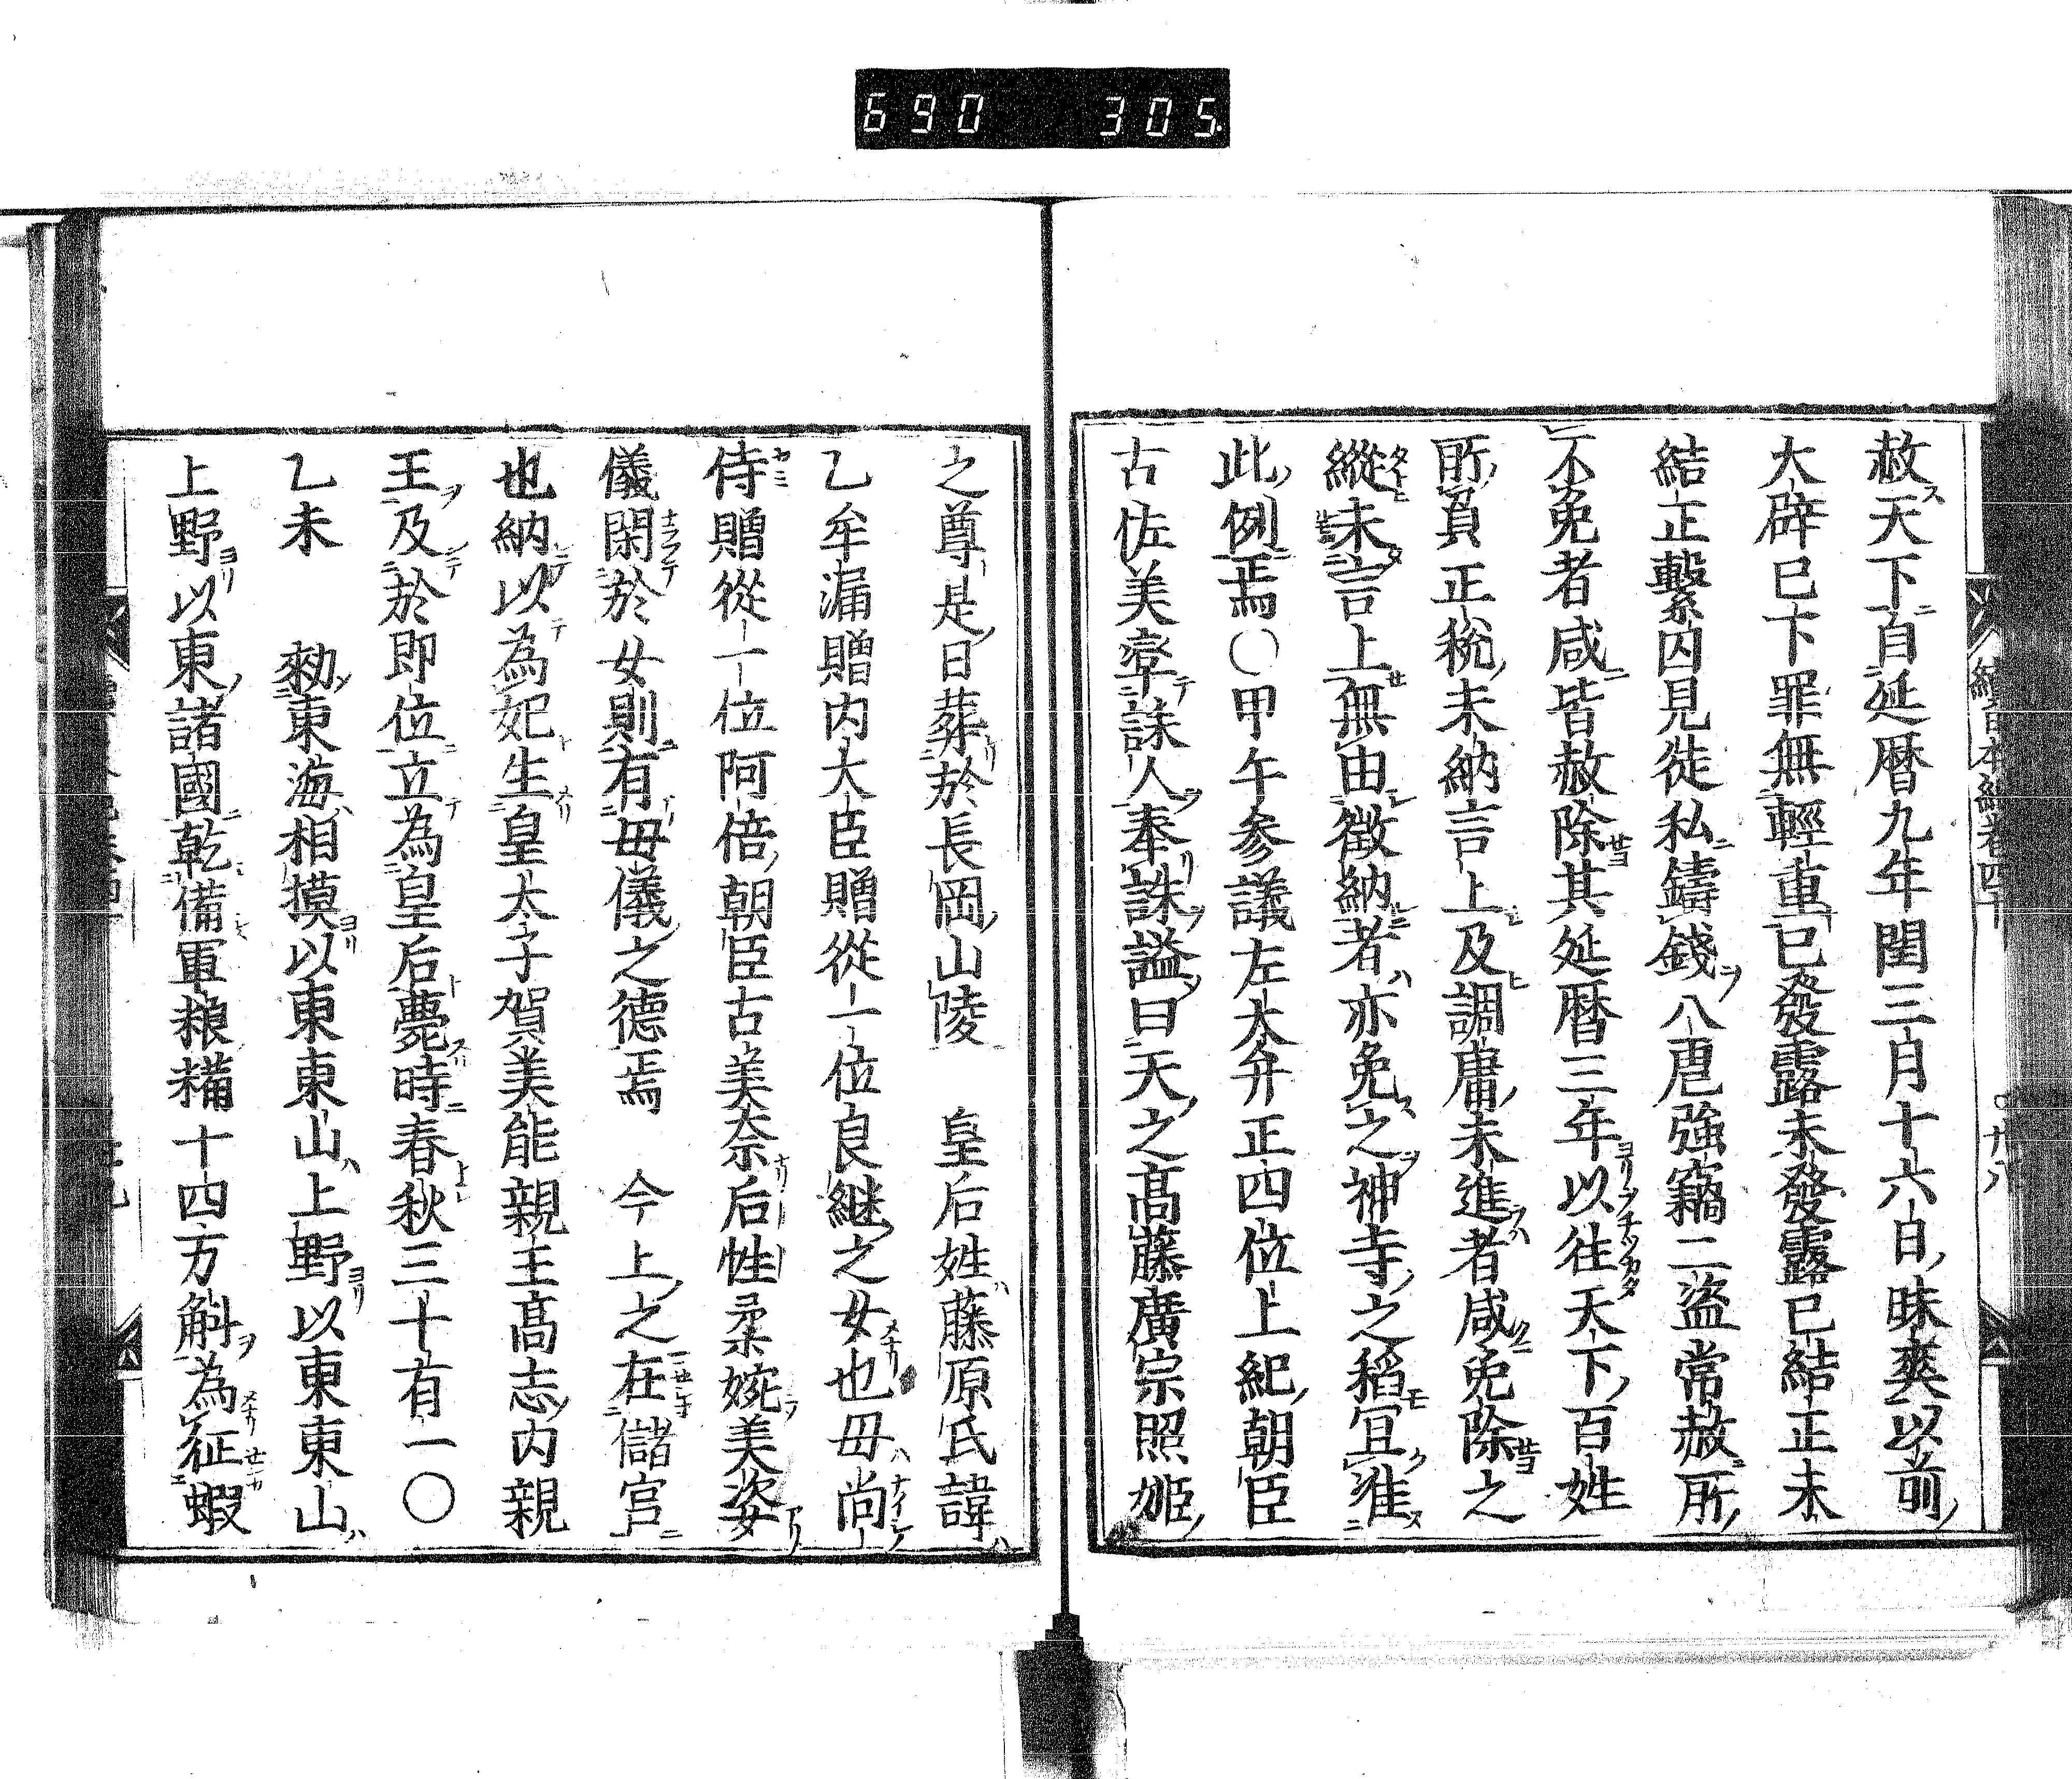 690 305
赦天下自延暦九年閏三月十六日昧爽以前
大辟已下罪無輕重已發露未發露已結正未
結正繋囚見徒私鑄錢八虐強竊二盜常赦所
不免者咸皆赦除其延暦三年以往天下百姓
所負正税未納言上及調庸未進者咸免除之
縱未言上無由徴納者亦免之神寺之稻冝准
此例焉〇甲午参議左大弁正四位上紀朝臣
古佐美率誄人奉誄謚曰天之髙藤廣宗照姬
之尊是日葬於長岡山陵 皇后姓藤原氏諱
乙牟漏贈内大臣贈從一位良継之女也毋尚
侍贈從一位阿倍朝臣古美奈后性柔婉美姿
儀閑於女則有毋儀之德焉 今上之在儲宫
也納以為妃生皇太子賀美能親王髙志内親
王及於即位立為皇后薨時春秋三十有一〇
乙未 勑東海相摸以東東山上野以東東山
上野以東諸國乾備軍粮糒十四万斛為征蝦